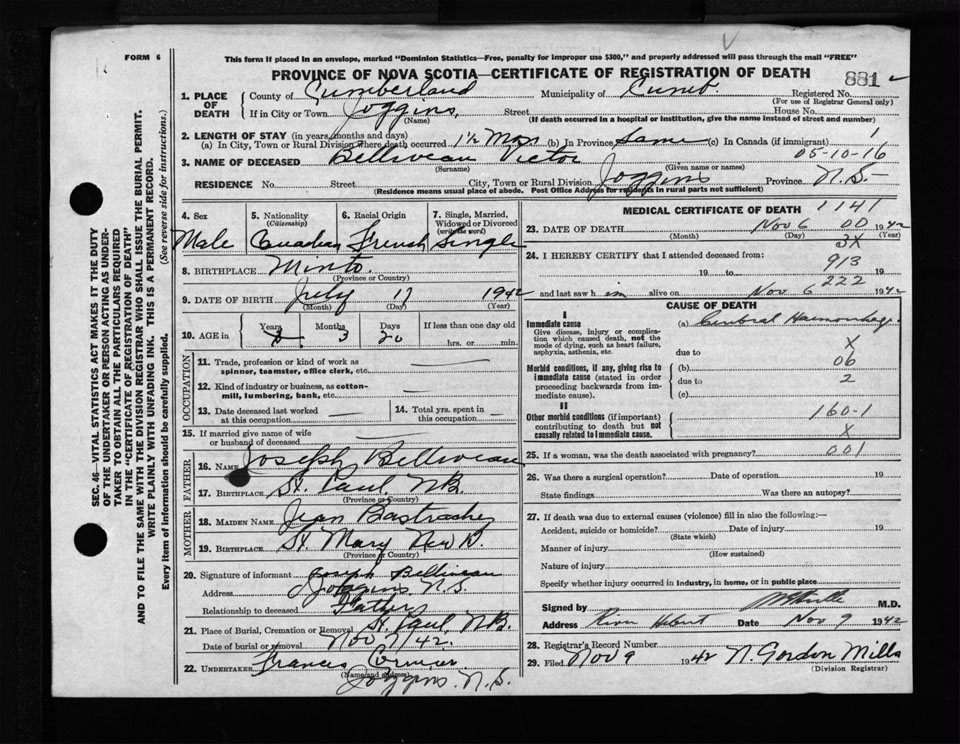 FORM 6
This form if placed in an envelope, marked "Dominion Statistics—Free, penalty for improper use $300," and properly addressed will pass through the mail "FREE"
PROVINCE OF NOVA SCOTIA—CERTIFICATE OF REGISTRATION OF DEATH
881
1. PLACE OF DEATH
County of Cumberland Municipality of Cumb. Registered No.
(For use of Registrar General only)
If in City or Town Joggins, Street House No.
(Name) (If death occurred in a hospital or institution, give the name instead of street and number)
2. LENGTH OF STAY (in years, months and days)
(a) In City, Town or Rural Division where death occurred 1½ Mos (b) In Province Same (c) In Canada (if immigrant) 1
3. NAME OF DECEASED Belliveau Victor 05-10-16
(Surname) (Given name or names)
RESIDENCE No. Street City, Town or Rural Division Joggins Province N.S.
(Residence means usual place of abode. Post Office Address for residents in rural parts not sufficient)
4. Sex
Male
5. Nationality
(Citizenship)
Canadian
6. Racial Origin
French
7. Single, Married, Widowed or Divorced
(write the word)
Single
8. BIRTHPLACE Minto.
(Province or Country)
9. DATE OF BIRTH July 17 1942
(Month) (Day) (Year)
10. AGE in
Years Months Days If less than one day old
3 20 hrs. or min.
OCCUPATION
11. Trade, profession or kind of work as spinner, teamster, office clerk, etc.
12. Kind of industry or business, as cotton-mill, lumbering, bank, etc.
13. Date deceased last worked at this occupation
14. Total yrs. spent in this occupation
15. If married give name of wife or husband of deceased
FATHER
16. NAME Joseph Belliveau
17. BIRTHPLACE St. Paul, N.B.
(Province or Country)
MOTHER
18. MAIDEN NAME Jean Bastrache
19. BIRTHPLACE St Mary New B.
(Province or Country)
20. Signature of informant Joseph Belliveau
Address Joggins N.S.
Relationship to deceased Father
21. Place of Burial, Cremation or Removal St. Paul, N.B.
Date of burial or removal Nov 7 42.
22. UNDERTAKER Frances Cormier
(Name and address)
Joggins. N.S.
MEDICAL CERTIFICATE OF DEATH 1141
23. DATE OF DEATH Nov 6 00 1942
(Month) (Day) (Year)
3X
24. I HEREBY CERTIFY that I attended deceased from:
913
19 to 19
222
and last saw h im alive on Nov 6 1942
CAUSE OF DEATH
I
Immediate cause
Give disease, injury or complication which caused death, not the mode of dying, such as heart failure, asphyxia, asthenia, etc.
(a) Cerebral Haemorrhage
X
due to
Morbid conditions, if any, giving rise to immediate cause (stated in order proceeding backwards from immediate cause).
(b) 06
due to 2
(c)
II
Other morbid conditions (if important) contributing to death but not causally related to immediate cause.
160-1
X
25. If a woman, was the death associated with pregnancy? 001
26. Was there a surgical operation? Date of operation 19
State findings Was there an autopsy?
27. If death was due to external causes (violence) fill in also the following:—
Accident, suicide or homicide? Date of injury 19
(State which)
Manner of injury
(How sustained)
Nature of injury
Specify whether injury occurred in industry, in home, or in public place
Signed by M.D.
Address River Hebert Date Nov 9 1942
28. Registrar's Record Number
29. Filed Nov 9 1942 N. Gordon Mills
(Division Registrar)
SEC. 46—VITAL STATISTICS ACT MAKES IT THE DUTY
OF THE UNDERTAKER OR PERSON ACTING AS UNDER-
TAKER TO OBTAIN ALL THE PARTICULARS REQUIRED
IN THE "CERTIFICATE OF REGISTRATION OF DEATH"
AND TO FILE THE SAME WITH THE DIVISION REGISTRAR WHO SHALL ISSUE THE BURIAL PERMIT.
WRITE PLAINLY WITH UNFADING INK. THIS IS A PERMANENT RECORD.
Every item of information should be carefully supplied. (See reverse side for instructions.)